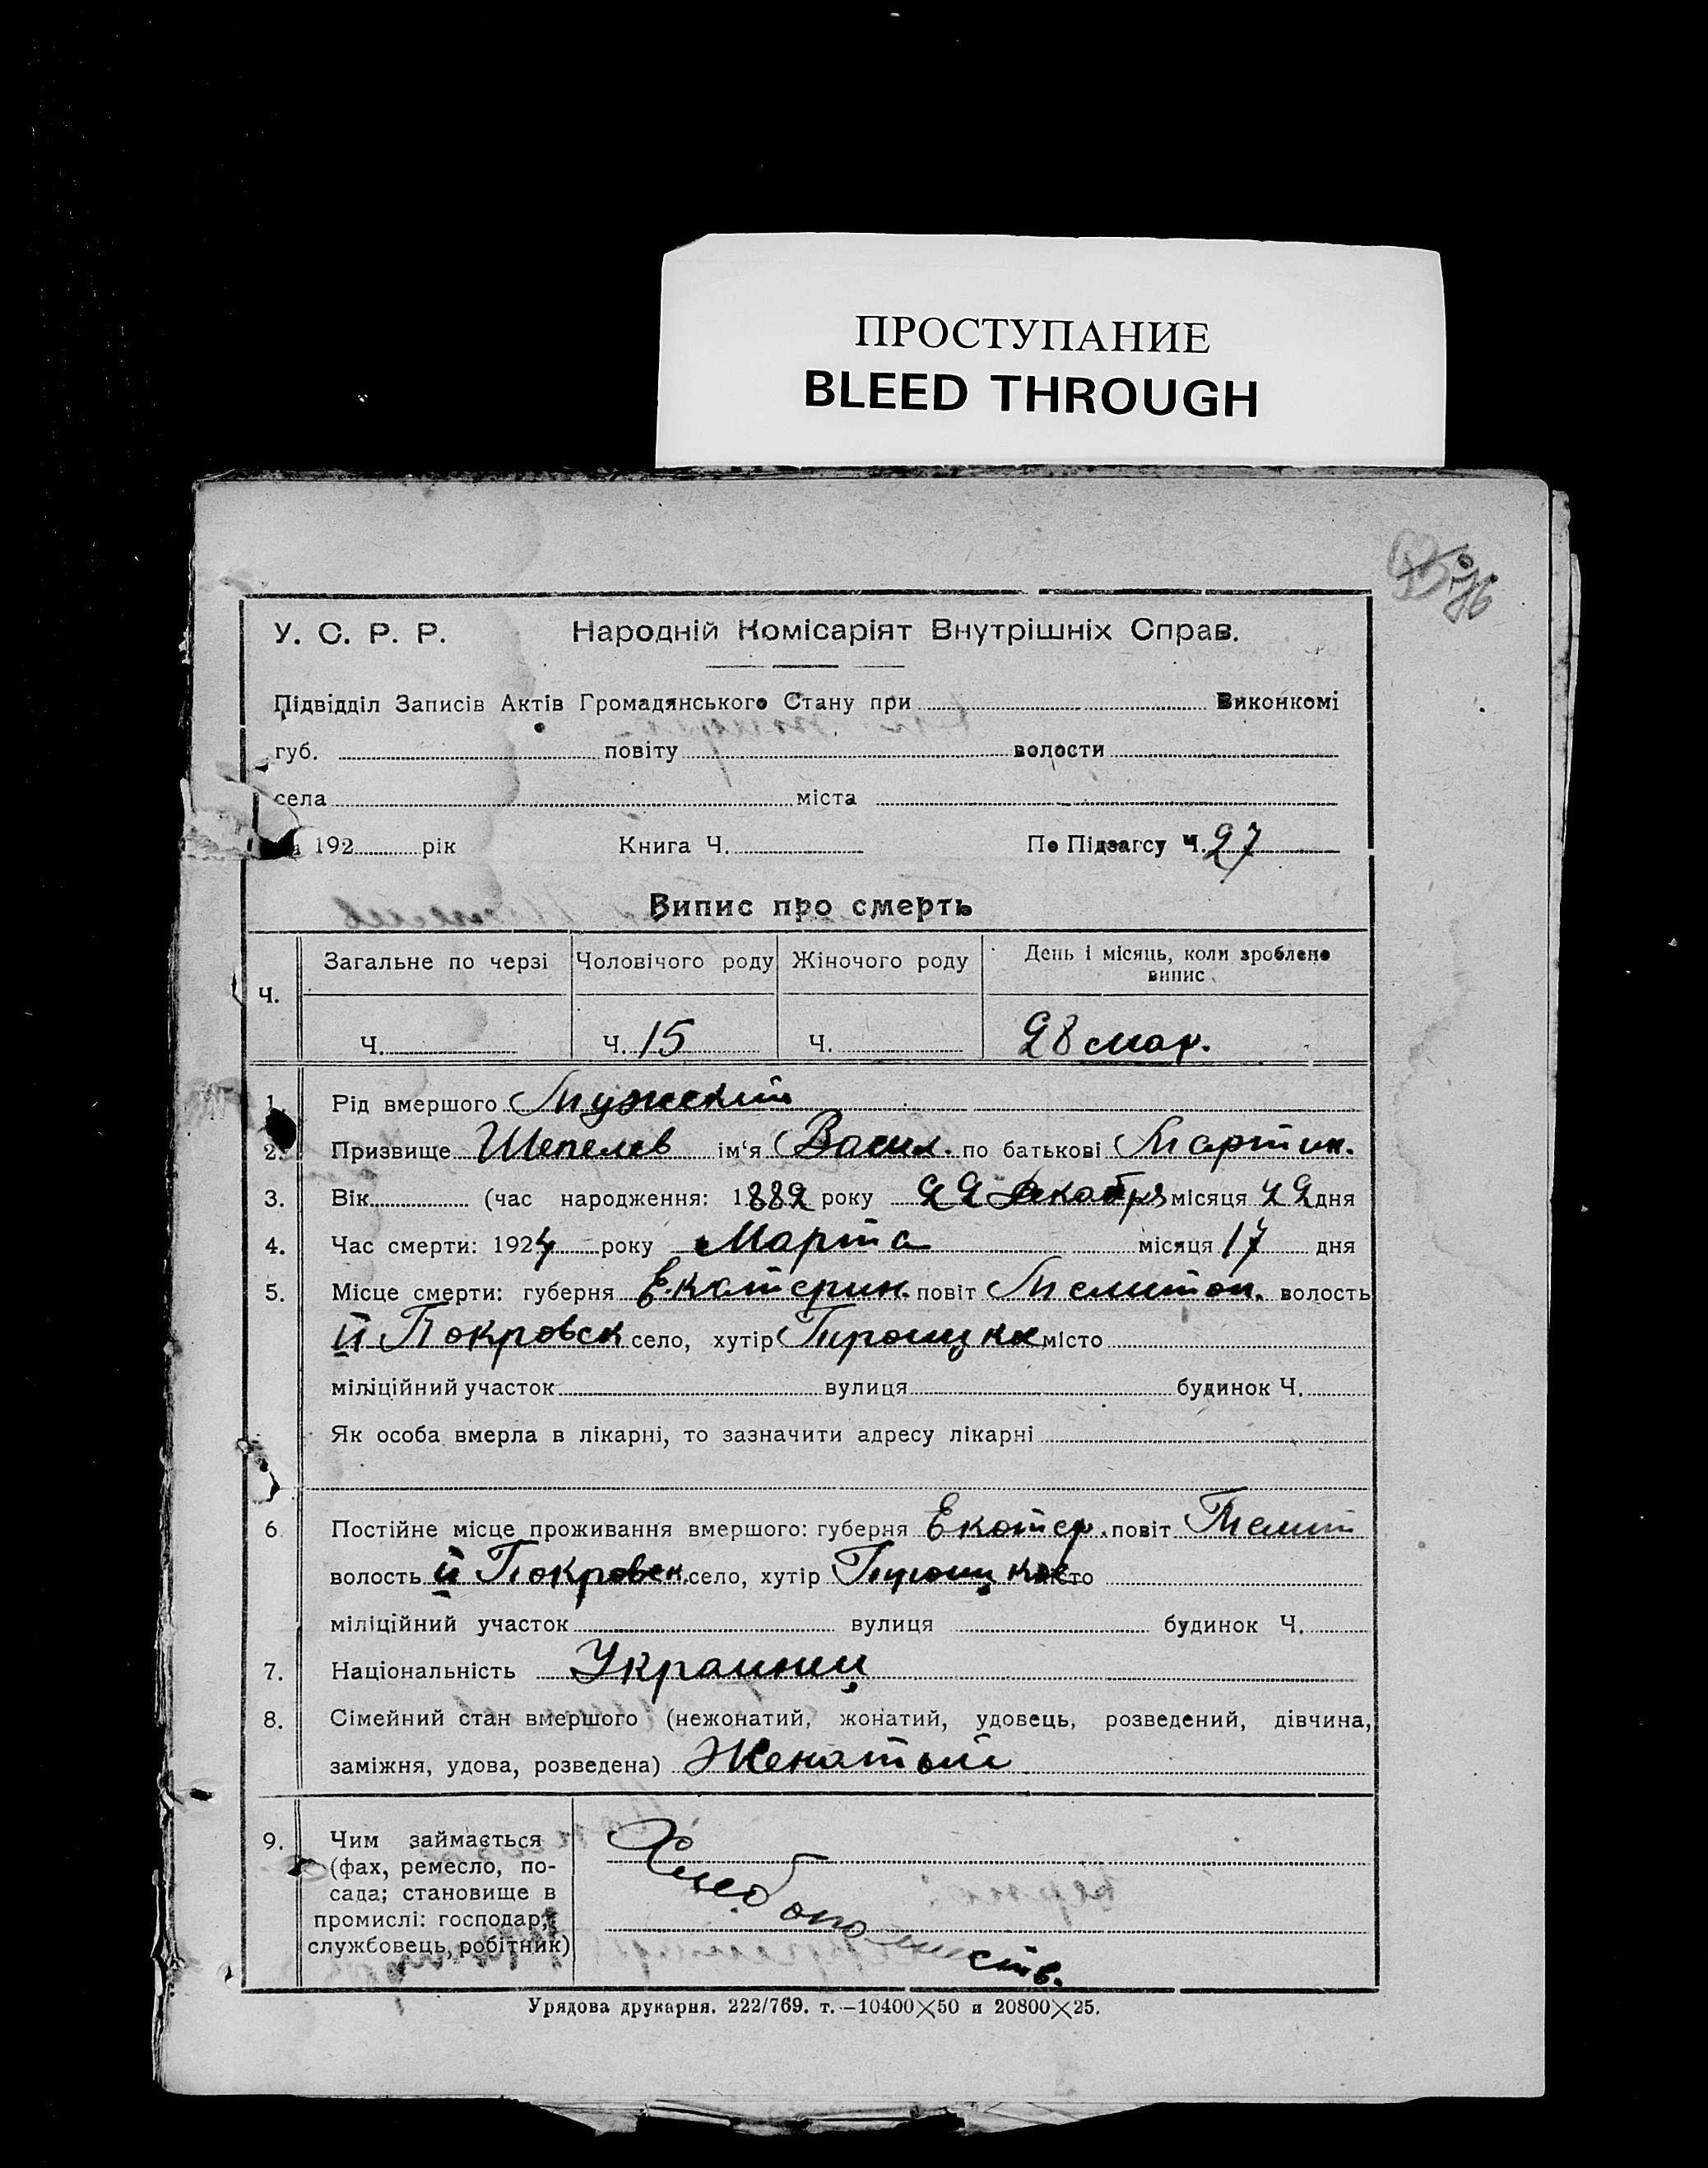 ПРОСТУПАНИЕ
BLEED THROUGH
У. С. Р. Р. Народній Комісаріят Внутрішніх Справ.
Підвідділ Записів Актів Громадянського Стану при Виконкомі
губ. повіту волости
села міста
192 рік Книга Ч. По Підзагсу Ч. 27
Випис про смерть
Ч. Загальне по черзі Чоловічого роду Жіночого роду День і місяць, коли зроблено
випис
Ч. Ч. 15 Ч. 28 мар.
1. Рід вмершого Мужский
2. Призвище Шепелев ім'я Васил. по батькові Мартин.
3. Вік (час народження: 1882 року 22 Декабря місяця 22 дня
4. Час смерти: 1924 року Марта місяця 17 дня
5. Місце смерти: губерня Екатерин. повіт Мелитоп. волость
й Покровск село, хутір Троицкое місто
міліційний участок вулиця будинок Ч.
Як особа вмерла в лікарні, то зазначити адресу лікарні
6 Постійне місце проживання вмершого: губерня Екатер. повіт Мелит
волость й Покровск. село, хутір Троицкое місто
міліційний участок вулиця будинок Ч.
7. Національність Украинец
8. Сімейний стан вмершого (нежонатий, жонатий, удовець, розведений, дівчина,
заміжня, удова, розведена) Женатый
9. Чим займається
(фах, ремесло, по-
сада; становище в
промислі: господар,
службовець, робітник)
Хлебопашеств.
Урядова друкарня. 222/769. т.—10400×50 и 20800×25.